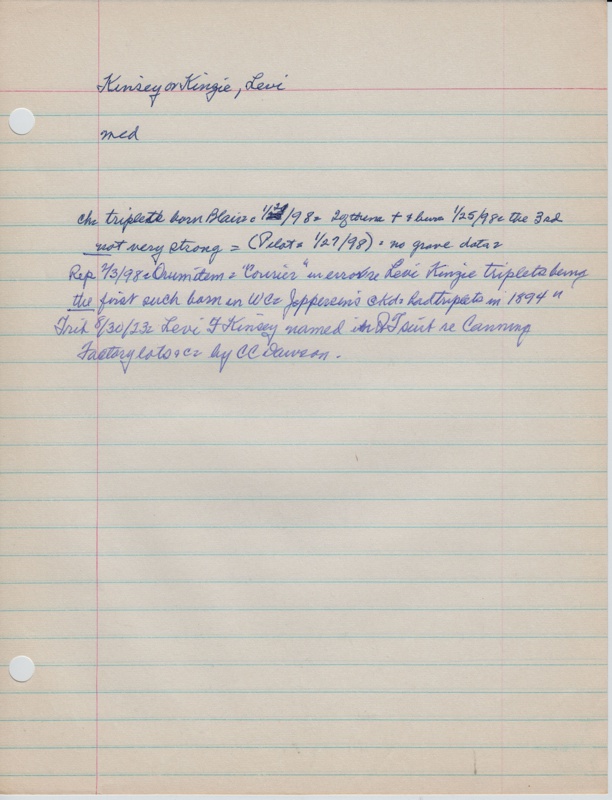 Kinsey or Kinzie, Levi
med
ch triplets born Blair = 1/98 = 2 of them + bur 1/25/98 = the 3rd
not very strong = (Pilot = 1/27/98) = no grave data =
Rep 2/3/98 = Orum item = "Courier" in error re Levi Kinzie triplets being
the first such born in WC = Jeppesen's had triplets in 1894"
Trib 8/30/23 = Levi F Kinsey named in suit re Canning
Factory lots &c = by CC Dawson.